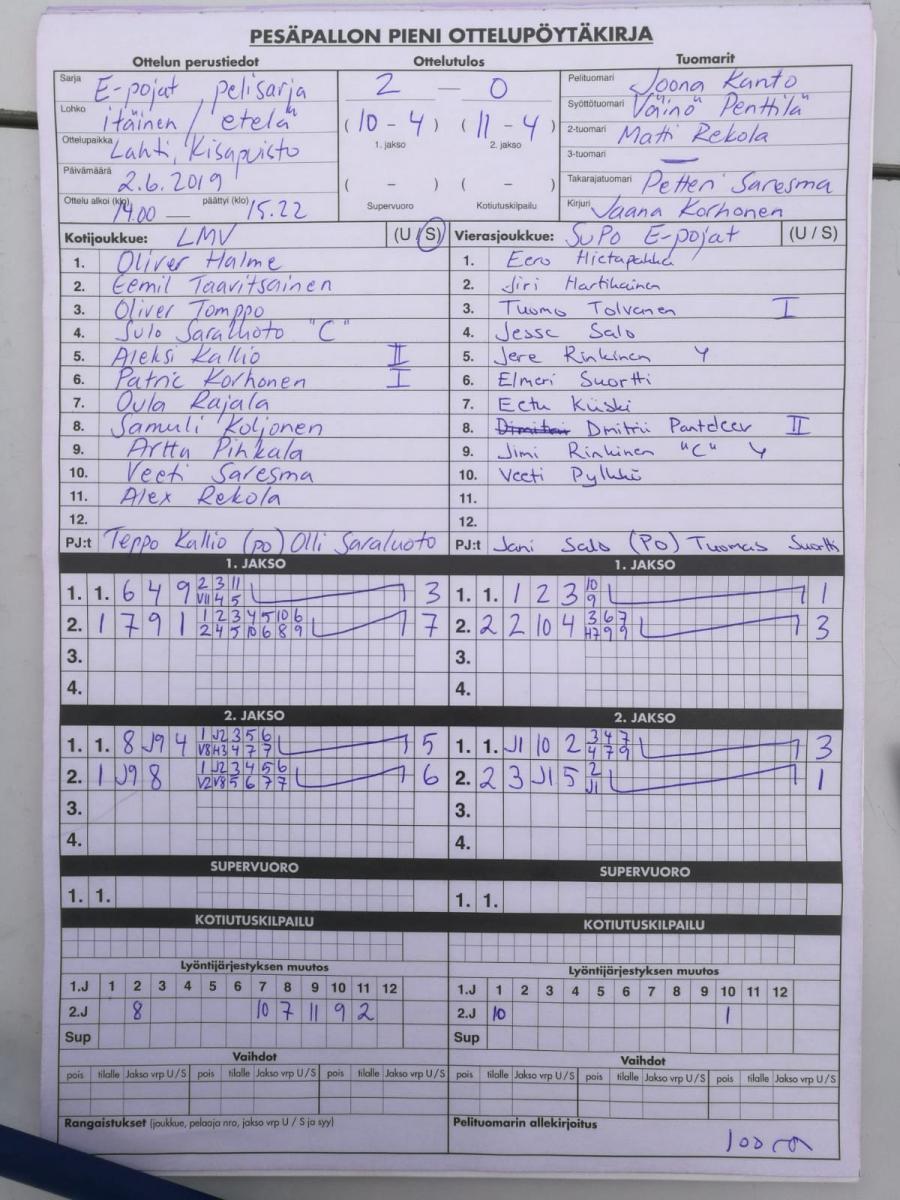 PESÄPALLON PIENI OTTELUPÖYTÄKIRJA
Ottelun perustiedot Ottelutulos Tuomarit
Sarja E-pojat pelisarja
Lohko itäinen / etelä
Ottelupaikka Lahti, Kisapuisto
Päivämäärä 2.6.2019
Ottelu alkoi (klo) 14.00 — päättyi (klo) 15.22
2 — 0
(10 - 4) (11 - 4)
1. jakso 2. jakso
( - ) ( - )
Supervuoro Kotiutuskilpailu
Pelituomari Joona Kanto
Syöttötuomari Väinö Penttilä
2-tuomari Matti Rekola
3-tuomari —
Takarajatuomari Petteri Saresma
Kirjuri Jaana Korhonen
Kotijoukkue: LMV (U / S)
1. Oliver Halme
2. Eemil Taavitsainen
3. Oliver Tomppo
4. Sulo Saraluoto "C"
5. Aleksi Kallio II
6. Patric Korhonen I
7. Oula Rajala
8. Samuli Koljonen
9. Arttu Pihkala
10. Veeti Saresma
11. Alex Rekola
12.
PJ:t Teppo Kallio (po) Olli Saraluoto
Vierasjoukkue: SuPo E-pojat (U / S)
1. Eero Hietapakka
2. Jiri Hartikainen
3. Tuomo Tolvanen I
4. Jesse Salo
5. Jere Rinkinen Y
6. Elmeri Suortti
7. Eetu Kiiski
8. Dmitrii II
9. Jimi Rinkinen "C" Y
10. Veeti Pylkkö
11.
12.
PJ:t Jani Salo (PO) Tuomas Suortti
1. JAKSO
1. 1. 6 4 9 2 3 11 3
VII 4 5
2. 1 7 9 1 1 2 3 4 5 10 6 7
2 4 5 10 6 8 9
3.
4.
1. JAKSO
1. 1. 1 2 3 10 1
9
2. 2 2 10 4 3 6 7 3
H7 9 9
3.
4.
2. JAKSO
1. 1. 8 J9 4 1 J2 3 5 6 5
V8 H3 4 7 7
2. 1 J9 8 1 J2 3 4 5 6 6
V2 V8 5 6 7 7
3.
4.
2. JAKSO
1. 1. J1 10 2 3 4 7 3
4 7 9
2. 2 3 J1 5 2 1
J1
3.
4.
SUPERVUORO
1. 1.
SUPERVUORO
1. 1.
KOTIUTUSKILPAILU
KOTIUTUSKILPAILU
Lyöntijärjestyksen muutos
1.J 1 2 3 4 5 6 7 8 9 10 11 12
2.J 8 10 7 11 9 2
Sup
Lyöntijärjestyksen muutos
1.J 1 2 3 4 5 6 7 8 9 10 11 12
2.J 10 1
Sup
Vaihdot
pois tilalle Jakso vrp U / S pois tilalle Jakso vrp U / S pois tilalle Jakso vrp U / S
Vaihdot
pois tilalle Jakso vrp U / S pois tilalle Jakso vrp U / S pois tilalle Jakso vrp U / S
Rangaistukset (joukkue, pelaaja nro, jakso vrp U / S ja syy)
Pelituomarin allekirjoitus